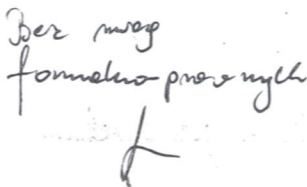 Bez uwag
formalno-prawnych